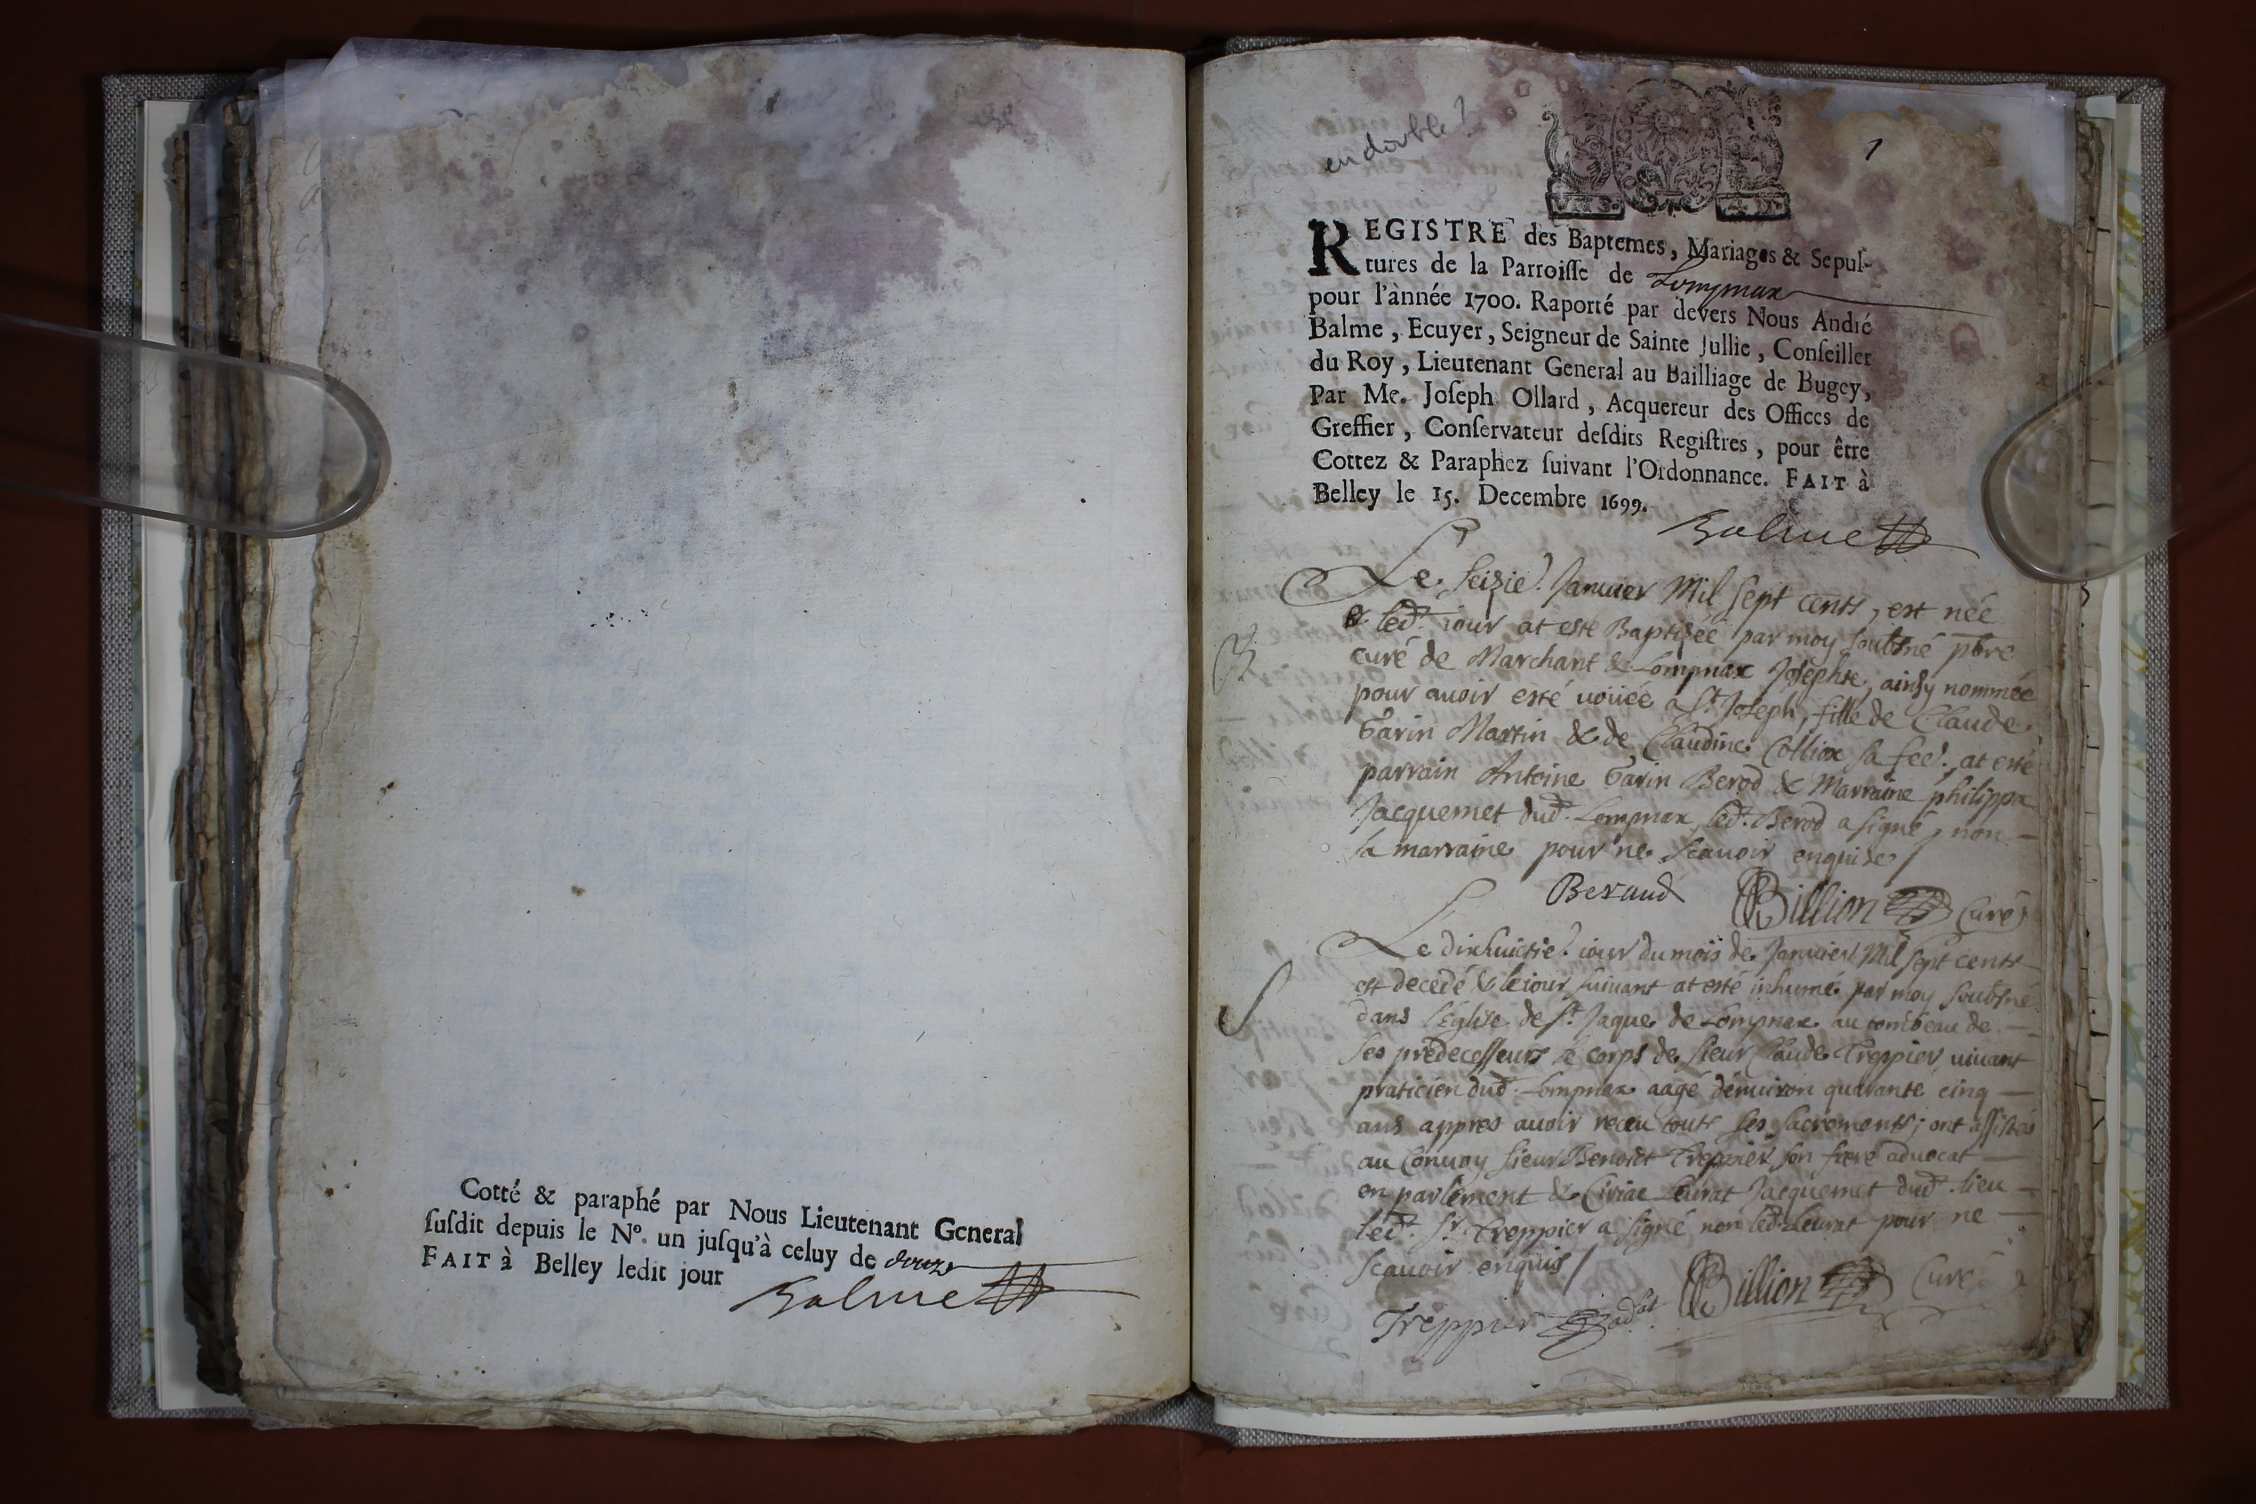 Cotté & paraphé par Nous Lieutenant General
susdit depuis le N°. un jusqu'à celuy de douze
FAIT à Belley ledit jour
Balme
en double?
1
REGISTRE des Baptemes, Mariages & Sepul-
tures de la Parroisse de Lompnax
pour l'ànnée 1700. Raporté par devers Nous André
Balme, Ecuyer, Seigneur de Sainte Jullie, Conseiller
du Roy, Lieutenant General au Bailliage de Bugey,
Par Me. Joseph Ollard, Acquereur des Offices de
Greffier, Conservateur desdits Registres, pour être
Cottez & Paraphez suivant l'Ordonnance. FAIT à
Belley le 15. Decembre 1699.
Balme
Le seizie. Januier Mil sept cents, est née
& led. iour at esté Baptizéé par moy soubsné pbre
curé de Marchant & Lompnax Josephte, ainsy nommée
pour auoir esté uoüée a St. Joseph, fille de Claude
Garin Martin & de Claudine Colliox sa fee. at esté
parrain Antoine Garin Berod & Marraine philippa
Jacquemet dud. Lompnax, led. Berod a signé, non
la marraine pour ne scauoir enquise
Beraud Billion Curé
Le dixhuictie. iour du mois de Januier Mil sept cents
est decedé & le iour suiuant at esté inhumé par moy soubsné
dans l'Eglise de St. Jaque de Lompnax au tombeau de
ses predecesseurs le corps de sieur Claude Treppier uiuant
praticien dud. Lompnax aagé d'enuiron quarante cinq
ans appres auoir receu touts les sacrements; ont assistés
au Conuoy sieur Benoict Treppier son frere aduocat
en parlement & Ciriac Leurat Jacquemet dud. lieu
led. Sr. Treppier a signé non led. Leurat pour ne
scauoir enquis
Treppier adat. Billion Curé